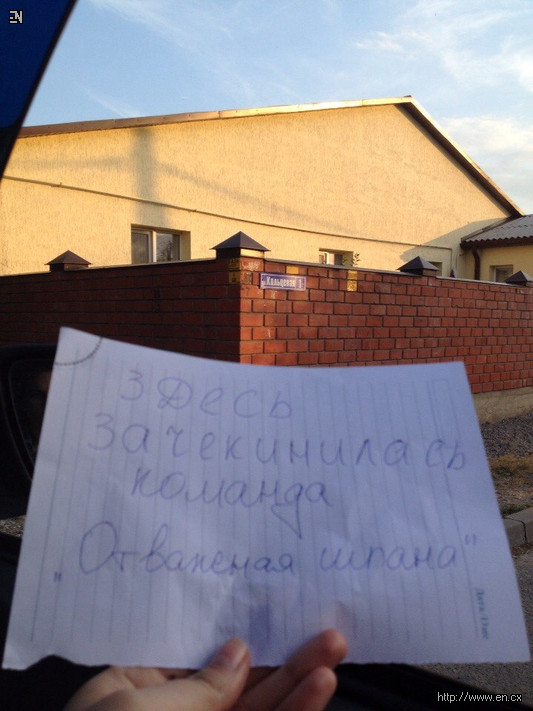 EN
Кольцевая 1
Здесь
Зачекинилась
команда
„Отважная шпана"
http://www.en.cx